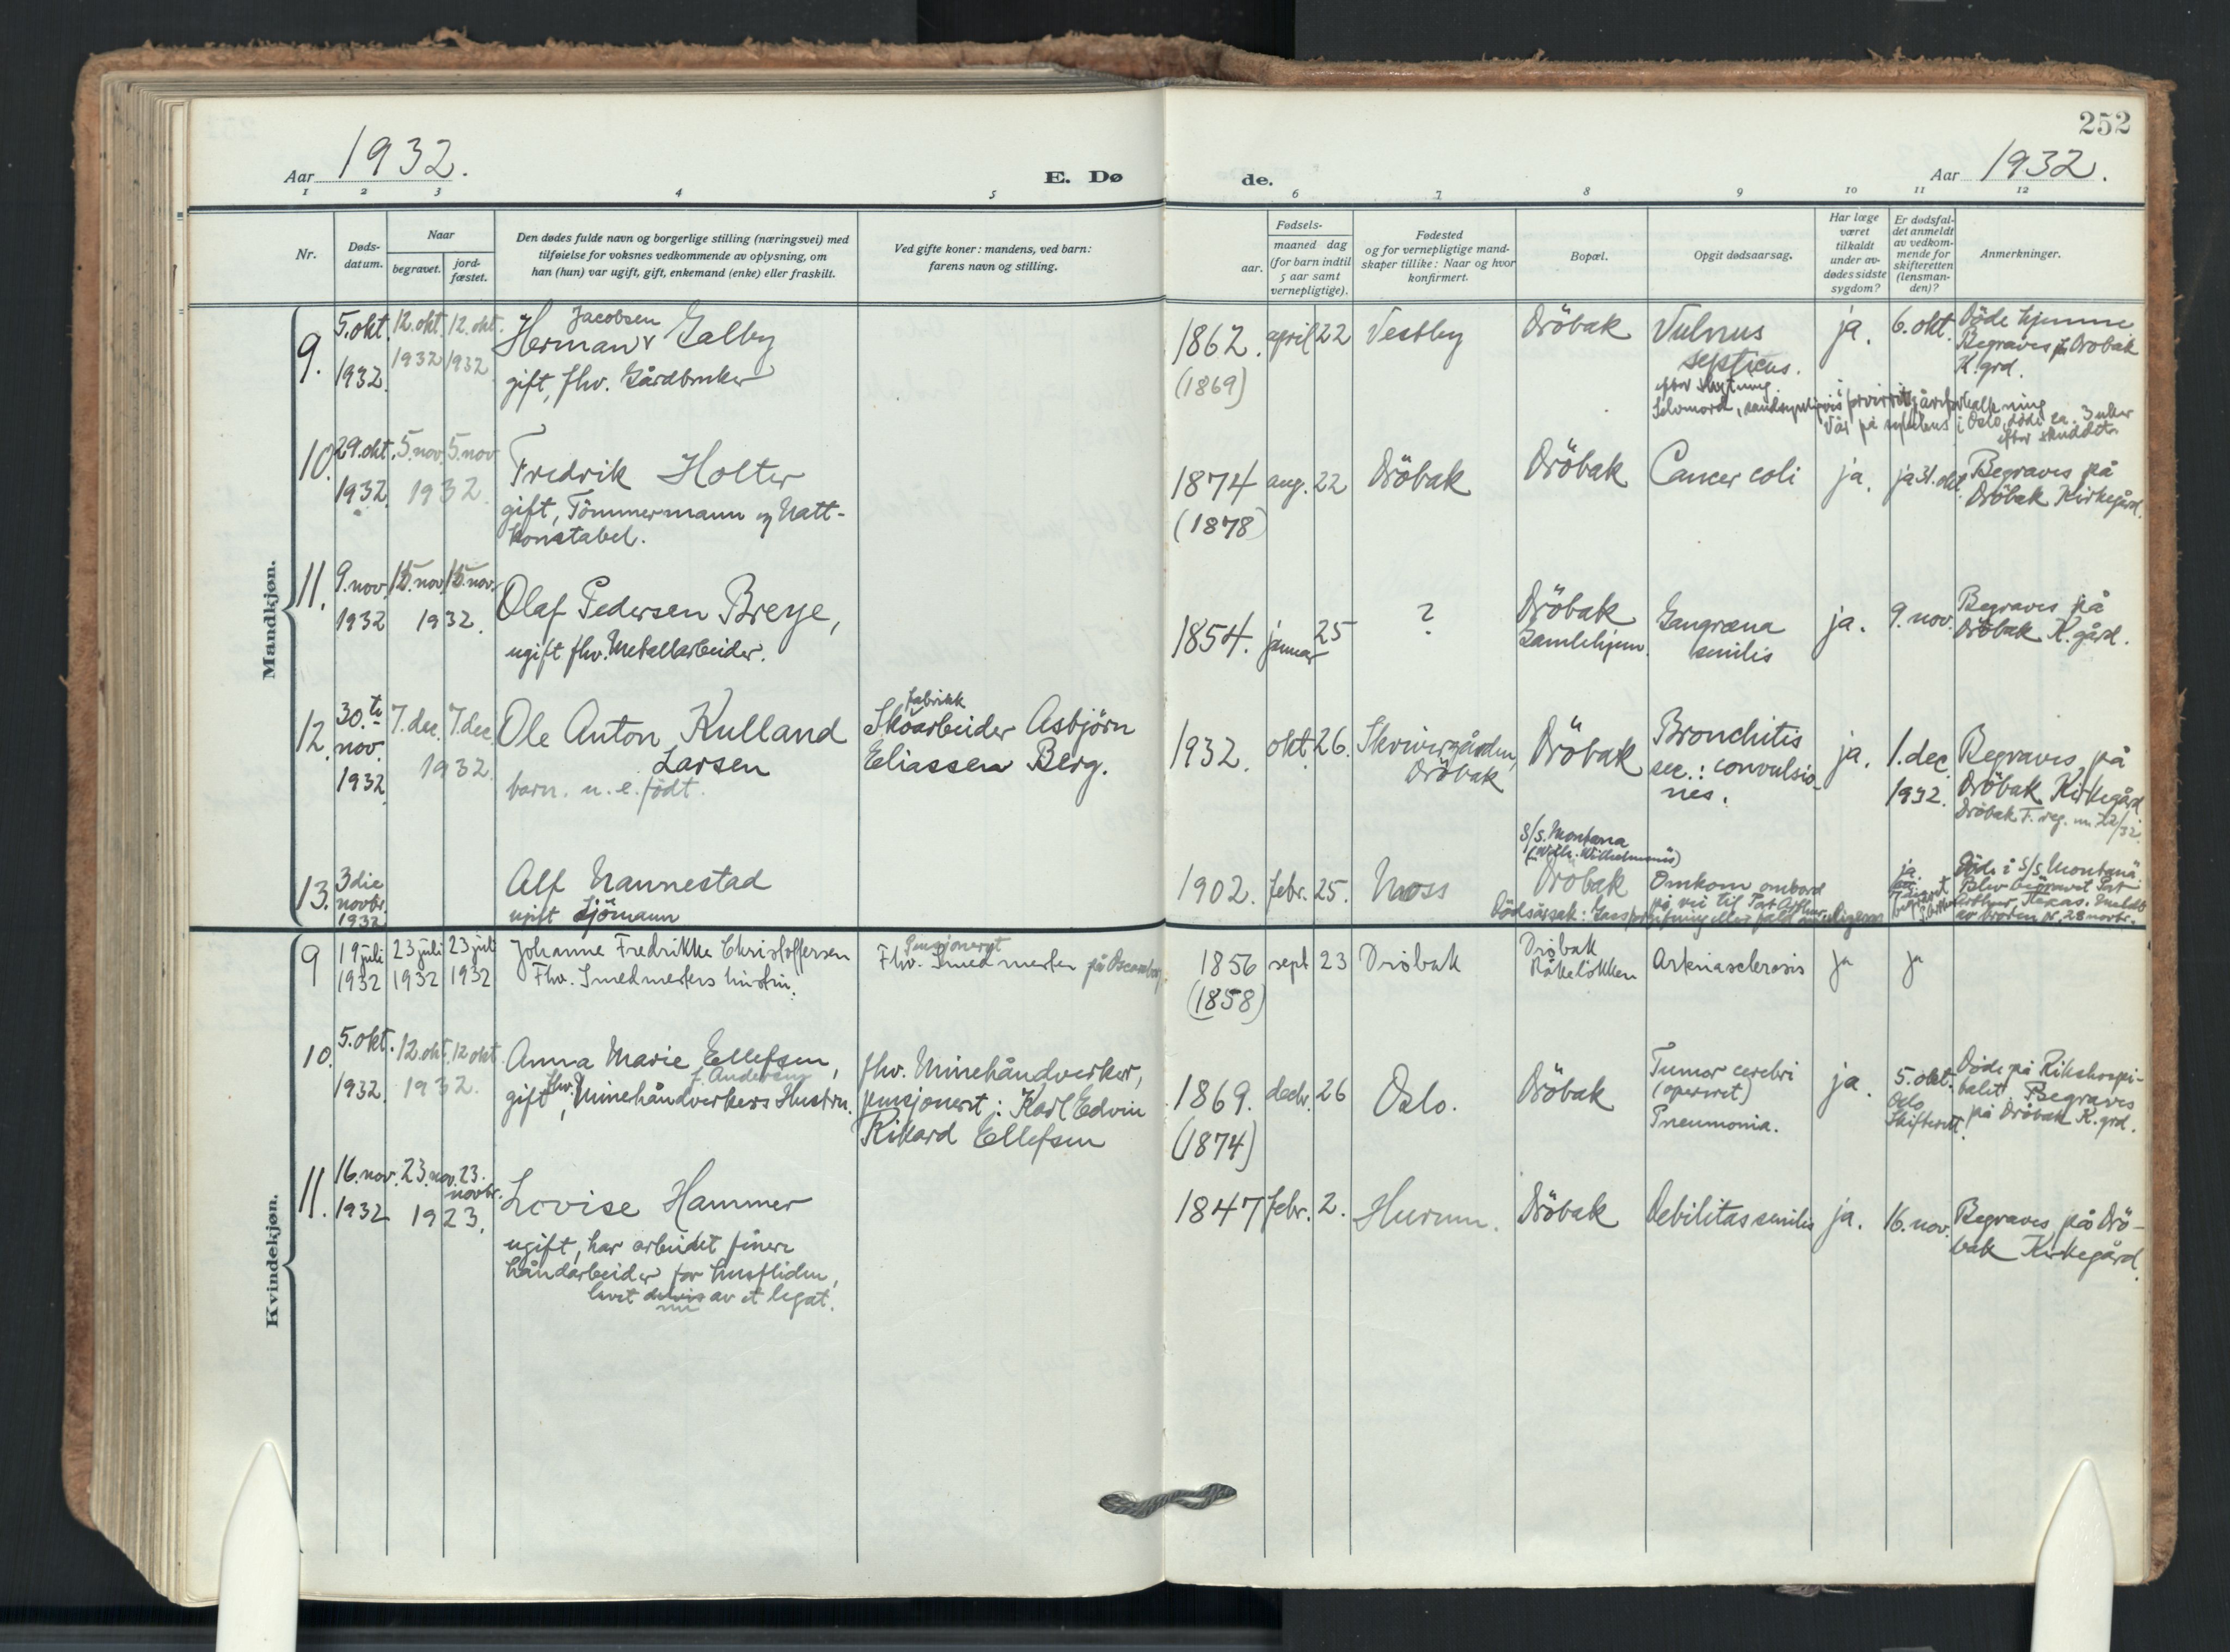 252
Aar 1932.
E. Dø
de.
Aar 1932.
1 2 3 4 5 6 7 8 9 10 11 12
Nr.
Døds-
datum.
Naar
begravet.
jord-
fæstet.
Den dødes fulde navn og borgerlige stilling (næringsvei) med
tilføielse for voksnes vedkommende av oplysning, om
han (hun) var ugift, gift, enkemand (enke) eller fraskilt.
Ved gifte koner: mandens, ved barn:
farens navn og stilling.
Fødsels-
aar.
maaned dag
(for barn indtil
5 aar samt
vernepligtige).
Fødested
og for vernepligtige mand-
skaper tillike: Naar og hvor
konfirmert.
Bopæl.
Opgit dødsaarsag.
Har læge
været
tilkaldt
under av-
dødes sidste
sygdom?
Er dødsfal-
det anmeldt
av vedkom-
mende for
skifteretten
(lensman-
den)?
Anmerkninger.
Mandkjøn.
9.
5. okt.
1932.
12. okt.
1932
12. okt.
1932
Jacobsen
Herman Galby
gift, fhv. Gårdbruker
1862.
(1869)
april 22
Vestby
Dröbak
Vulnus
septicus.
efter skytning.
Selvmord,
ja.
6. okt.
Döde hjemme
Begraves på Dröbak
K.grd.
Var på sykehus i Oslo, döde ca. 3 uker
efter skuddet
10.
29. okt.
1932.
5. nov.
5. nov
1932.
Fredrik Holter
gift, Tömmermann og Natt-
konstabel.
1874
(1878)
aug. 22
Dröbak
Dröbak
Cancer coli
ja.
ja 31. okt.
Begraves på
Dröbak Kirkegård.
11.
9. nov.
1932
15. nov.
15. nov.
1932.
Olaf Pedersen Breye,
ugift fhv. Metallarbeider.
1854.
januar 25
?
Dröbak
Gamlehjem.
Gangræna
senilis
ja.
9. nov.
Begraves på
Dröbak K.gård.
12.
30.te
nov.
1932
7. dec.
7. dec.
1932.
Ole Anton Kulland
Larsen
barn. u. e. födt.
fabrikk
Skoarbeider Asbjörn
Eliassen Berg.
1932.
okt. 26.
Skrivergården,
Dröbak
Dröbak
Bronchitis
sec.: convulsio-
nes.
ja.
1. dec.
1932.
Begraves på
Dröbak Kirkegård
Dröbak F. reg. nr. 22/32.
13.
3die
novbr.
1932
Alf Nannestad
ugift Sjömann
1902.
febr. 25.
Moss
S/S. Montana
(Wilh. Wilhelmsens)
Dröbak
Omkom ombord
på vei til Port Arthur
Dödsårsak:
ja.
Döde i S/S Montana.
Blev begravet Port
Arthur, Texas. Meldt
av broren pr. 28 novbr.
Kvindekjøn.
9
19 juli
1932
23 juli
1932
23 juli
1932
Johanne Fredrikke Christoffersen
Fhv. Smedmesters hustru.
Pensjonert
Fhv. Smedmester på Oscarsborg
1856
(1858)
sept 23
Dröbak
Dröbak
Råkelökken
Arteriasclerosis
ja
ja
10.
5. okt.
1932.
12. okt.
12 okt
1932.
Anna Marie Ellefsen,
f. Andersen
gift, fhv. Minehåndverkers Hustru.
fhv. Minehåndverker,
pensjonert: Karl Edvin
Rikard Ellefsen
1869.
(1874)
decbr. 26
Oslo.
Dröbak
Tumor cerebri
(operert)
Pneumonia.
ja.
5. okt.
Oslo
Skifterett.
Döde på Rikshospi-
talet. Begraves
på Dröbak K.grd.
11.
16. nov.
1932
23. nov.
23.
novbr.
1923.
Lovise Hammer
ugift, har arbeidet finere
håndarbeider for husfliden,
levet av et legat.
1847
febr. 2.
Hurum.
Dröbak
Debilitas senilis
ja.
16. nov.
Begraves på Drö-
bak Kirkegård.